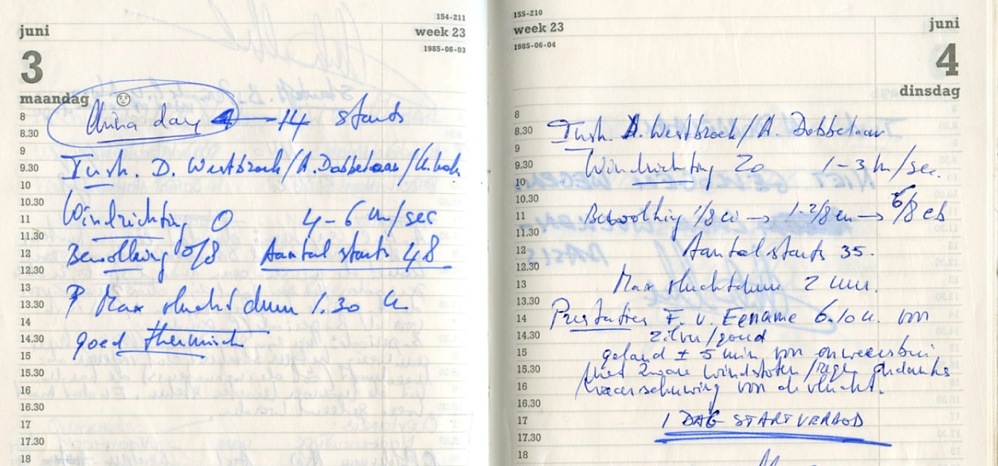 juni
154-211
week 23
1985-06-03
3
maandag
8
8.30
9
9.30
10
10.30
11
11.30
12
12.30
13
13.30
14
14.30
15
15.30
16
16.30
17
17.30
18
China day 14 starts
Instr. D. Westbroek/A. Dobbelaar/
Windrichting O 4-6 m/sec
Bewolking 0/8 Aantal starts 48
Max vluchtduur 1.30 u
goed thermisch
155-210
week 23
1985-06-04
juni
4
dinsdag
8
8.30
9
9.30
10
10.30
11
11.30
12
12.30
13
13.30
14
14.30
15
15.30
16
16.30
17
17.30
18
Instr. A. Westbroek/A. Dobbelaar
Windrichting ZO 1-3 m/sec.
Bewolking 1/8 ci → 1-2/8 cu → 6/8 cb
Aantal starts 35.
Max vluchtduur 2 uur.
Prestaties F. v. Eename 6.10 u. voor
zilver/goud
geland ± 5 min voor onweersbui
met zware windstoten/regen ondanks
waarschuwing voor de vlucht.
1 DAG STARTVERBOD